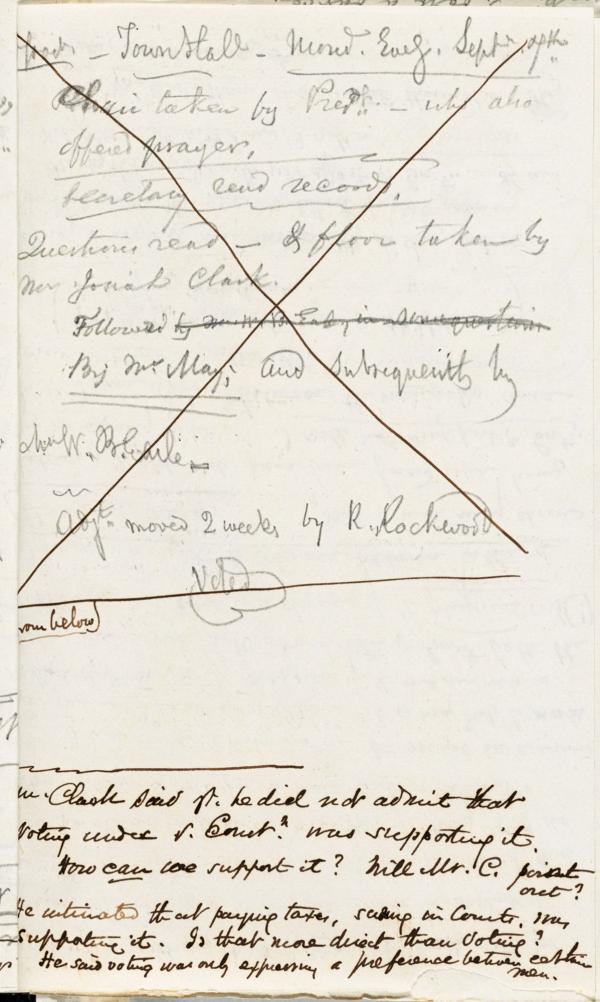 – Town Hall – Mond. Eveg. Septr. 7th
Chair taken by Presdt. – who also
offered prayer.
Secretary read records.
Questions read – & floor taken by
Mr Josiah Clark.
Followed by Mr W. B. Earle, in some question
By Mr May; and subsequently by
Mr W. B. Earle.
Adjt. moved 2 weeks by R. Rockwood
Voted
from below)
Mr. Clark said yt. he did not admit that
voting under ye. Constn. was supporting it.
How can we support it? Will Mr. C. point
out?
He intimated that paying taxes, suing in Courts, was
supporting it. Is that more direct than voting?
He said voting was only expressing a preference between certain
men.